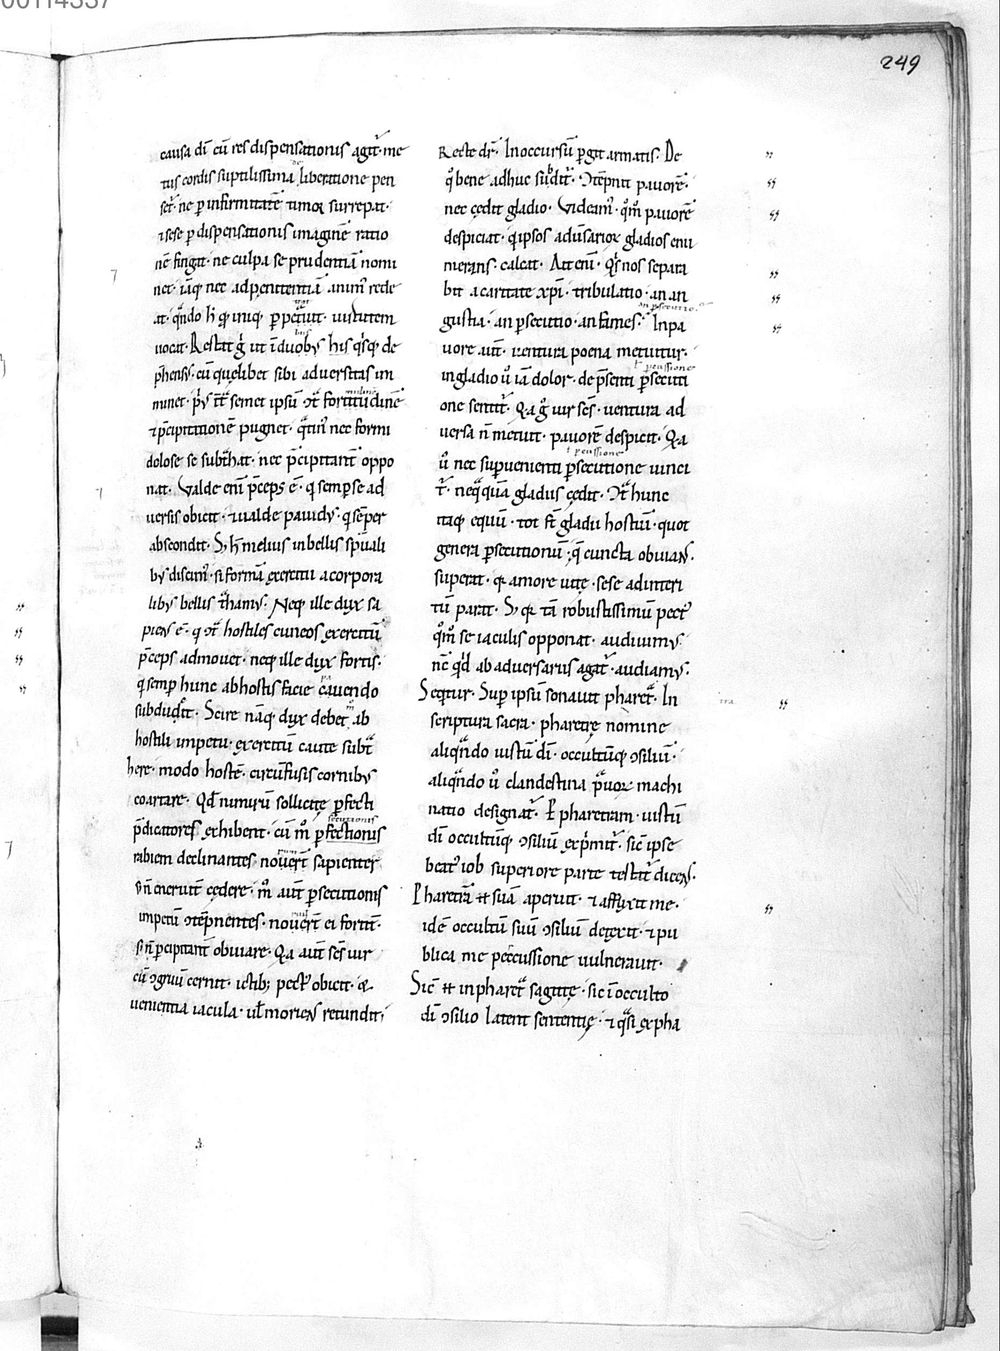 249
causa di͞ cu͞ res dispensationis agit᷑· me
tus cordis suptilissima liberatione pen
set᷑· ne p̱ infirmitate͞ timor surrepat·
⁊ sese p̱ dispensationis imagine͞ ratio
ne͞ fingat· ne culpa se prudentia͞ nomi
net· ia͞q; nec ad pęnitentia͞ animu͞ rede
at·
uocat· Restat g̊ ut i͞ duobꝰ his q͛sq; de
p͛hensꝰ· cu͞ quęlibet sibi aduersitas im
minet· p͛ꝰ semet ipsu͞ ↄt᷑ fortitudine͞
⁊ p͛cipitatione͞ pugnet· nec formi
dolose se subt᷑hat· nec p͛cipitant᷑ oppo
nat· Valde eni͞ p͛ceps e͞· q semp̱ se ad
uersis obicit· ⁊ ualde pauidꝰ· q se͞per
abscondit· S; h̄ melius in bellis sp͞uali
bꝰ discim᷒· si forma͞ exercitii a corpora
libꝰ bellis t᷑hamꝰ· Neq; ille dux sa
piens e͞· q ↄt᷑ hostiles cuneos exercitu͞
p͛ceps admouet· neq; ille dux fortis·
q semp̱ hunc ab hostis facie cauendo
subducit· Scire na͞q; dux debet ab
hostili impetu· exercitu͞ caute subt᷑
here· modo hoste͞· circu͞fusis cornibꝰ
coartare· Qd͞ nimiru͞ sollicite p̱fecti
p͛dicatores exhibent· cu͞ m̊ p̱fectionis
rabiem declinantes nouert͞ sapienter
⁊ n͞ eneruit᷑ cędere· m̊ aut͞ p̱secutionis
impetu͞ ↄte͞pnentes· nouert͞ ei fortit᷑·
⁊ n͞ p͛cipitant᷑ obuiare· Qa aut͞ sc͞s uir
cu͞ ↄgruu͞ cernit· ictib; pect᷒ obicit· &
uenientia iacula· ul̄ moriens retundit;
Recte dr͞· In occursu͞ p̱git armatis· De
q̊ bene adhuc su͞bdit᷑· Ↄte͞pnit pauore͞·
nec cędit gladio· Videam᷒· qm͞ pauore͞
despiciat· q ipsos aduersarioꝝ gladios enu
merans· calcat· Ait eni͞· Qs͛ nos separa
bit a caritate xp͞i· tribulatio· an an
gustia· an p̱secutio· an fames·᷑ In pa
uore aut͞· uentura poena metuitur·
in gladio u̇ ia͞ dolor· de p͛senti p̱secuti
one sentit᷑· Qa g̊ uir sc͞s· uentura ad
uersa n͞ metuit· pauore͞ despicit· Qa
u̇ nec superuenienti p̱secutione uinci
t᷑· neq͛qua͞ gladiis cędit· Ↄt᷑ hunc
itaq; equu͞· tot st͞ gladii hostiu͞· quot
genera p̱secutionu͞; q͛ cuncta obuians·
superat· qꝛ amore uitę· sese ad interi
tu͞ parat· S; qꝛ ta͞ robustissimu͞ pect᷒
qm͞ se iaculis opponat· audiuimꝰ·
nc͞ qd͞ ab aduersariis agat᷑· audiamꝰ·
Seq͛tur· Sup̱ ipsu͞ sonauit pharet͛· In
scriptura sacra· pharetrę nomine
aliq͛ndo iustu͞ di͞· occultu͞q; ↄsiliu͞·
aliq͛ndo u̇ clandestina p͛uoꝝ machi
natio designat᷑· P̱ pharetram· iustu͞
di͞ occultu͞q; ↄsiliu͞ exp͛mit᷑· sic͞ ipse
beat᷒ iob superiore parte testat᷑ dicens·
Pharetra͞ eni͞ sua͞ aperuit· ⁊ afflixit me·
ide͞ occultu͞ suu͞ ↄsiliu͞ detexit· ⁊ pu
blica me percussione uulnerauit·
Sic͞ eni͞ in pharet͛ sagittę· sic i͞ occulto
di͞ ↄsilio latent sententię· ⁊ q͛si ex pha